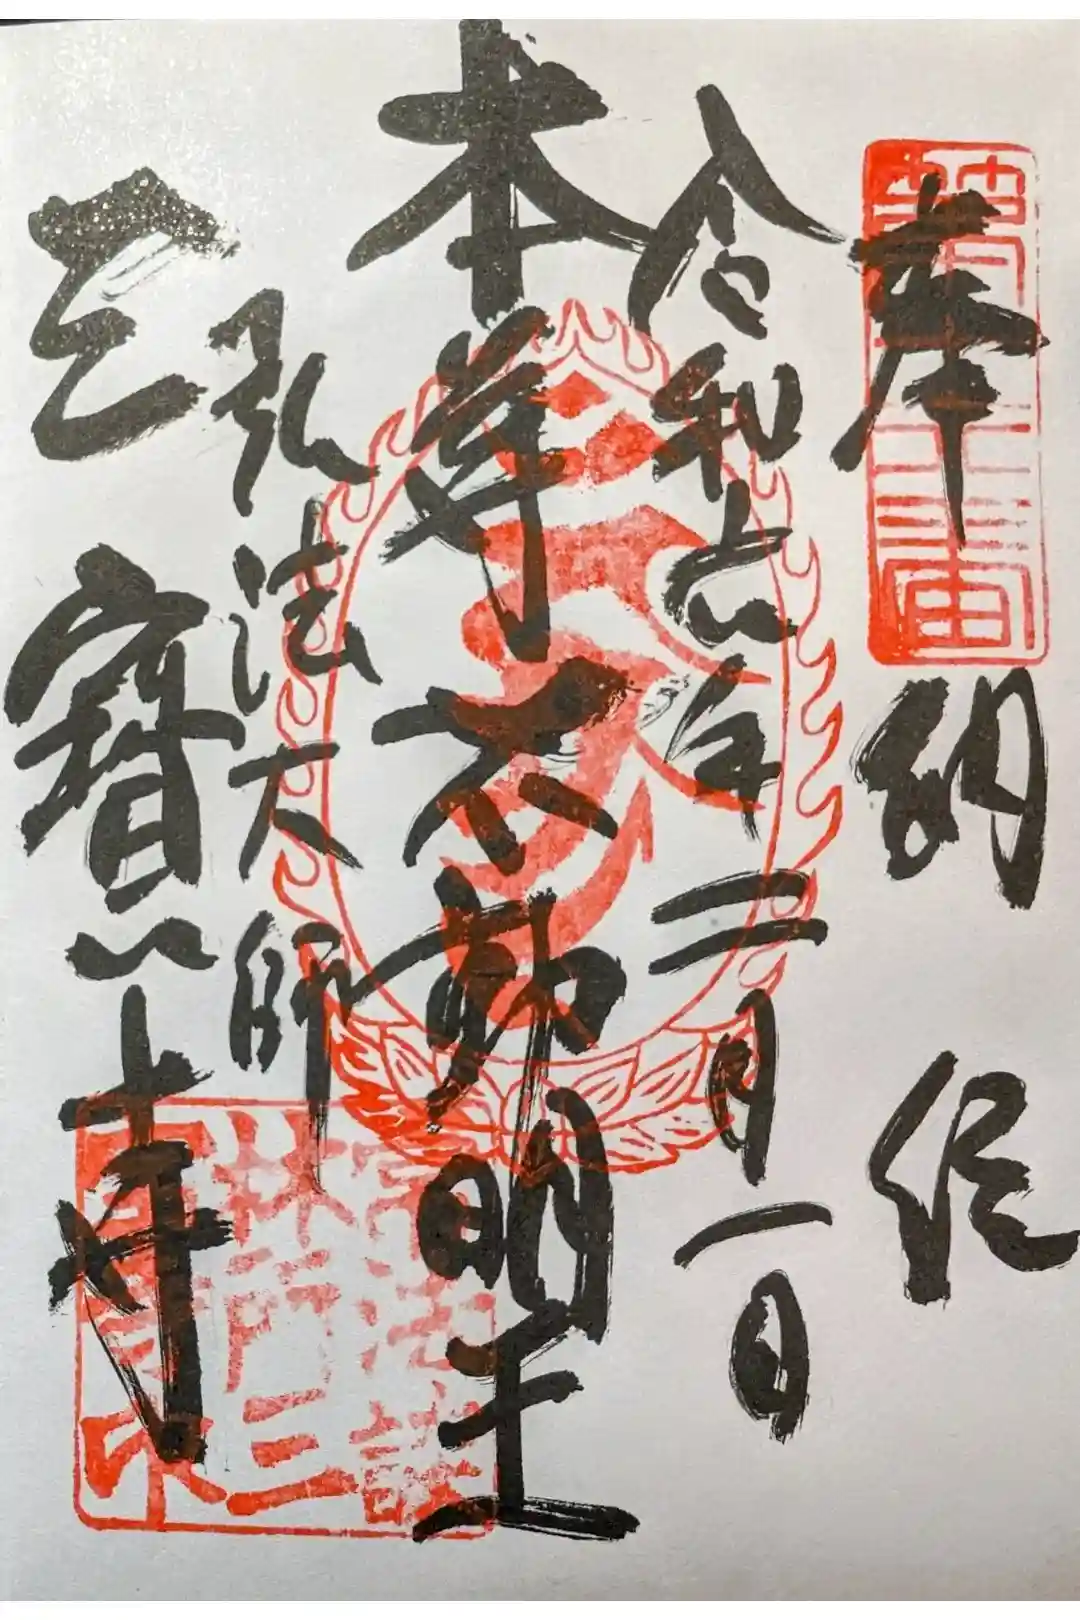 奉納経
令和六年二月一日
本尊不動明王
弘法大師
三寳寺